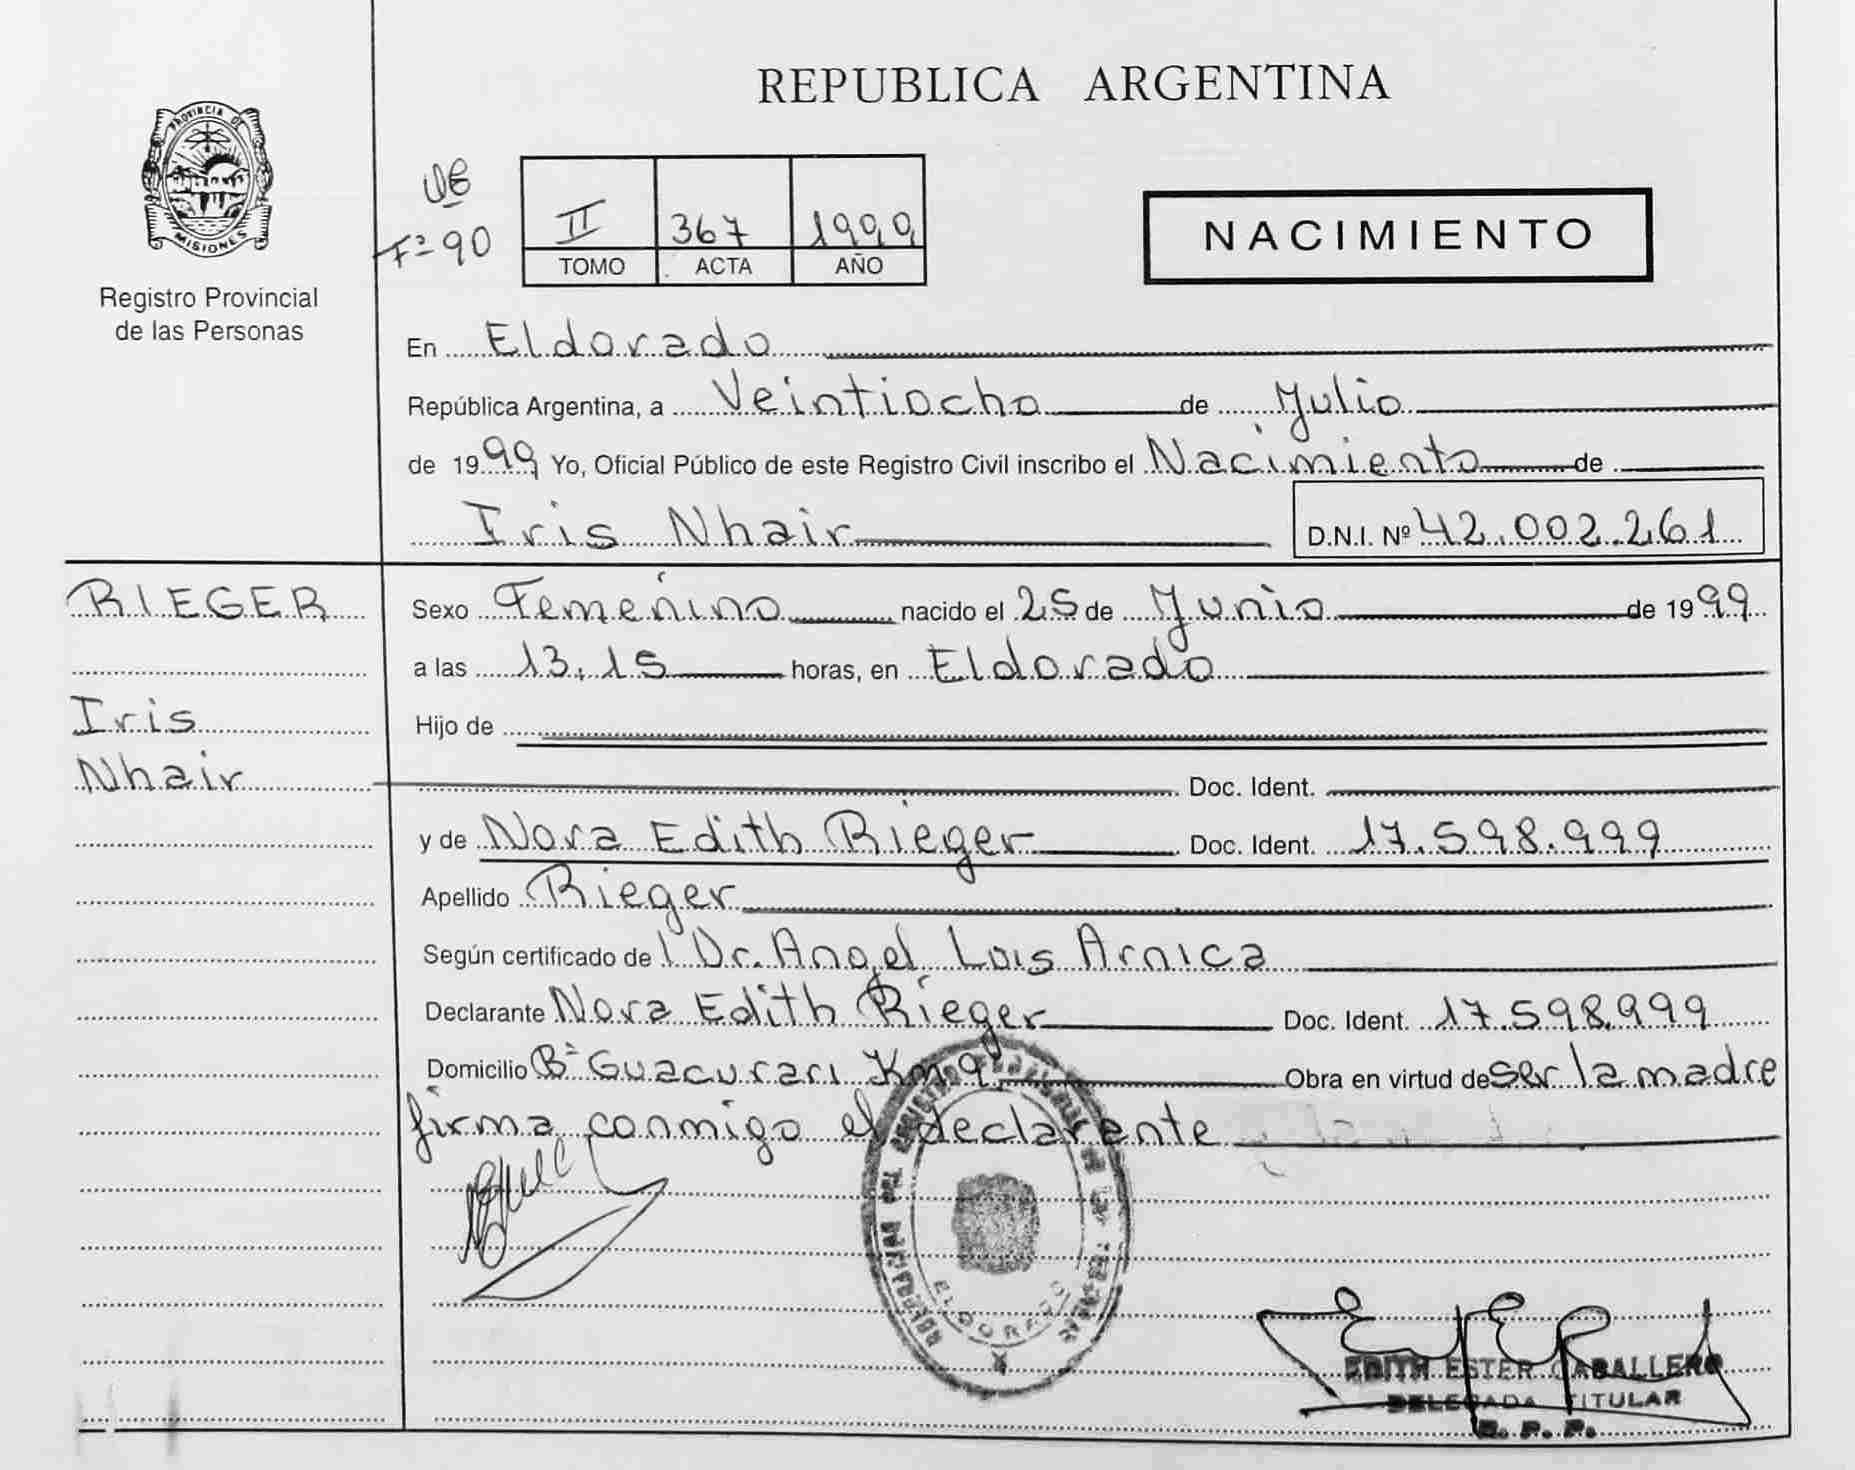 REPUBLICA ARGENTINA
PROVINCIA DE
MISIONES
Registro Provincial
de las Personas
Fº 90
II 367 1999
TOMO ACTA AÑO
NACIMIENTO
En Eldorado
República Argentina, a Veintiocho de Julio
de 1999 Yo, Oficial Público de este Registro Civil inscribo el Nacimiento de
Iris Nhair D.N.I. Nº 42.002.261
RIEGER
Iris
Nhair
Sexo Femenino nacido el 25 de Junio de 1999
a las 13.15 horas, en Eldorado
Hijo de
Doc. Ident.
y de Nora Edith Rieger Doc. Ident. 17.598.999
Apellido Rieger
Según certificado del Dr. Angel Luis Arnica
Declarante Nora Edith Rieger Doc. Ident. 17.598.999
Domicilio Bº Guacurari Km 9 Obra en virtud de ser la madre
firma conmigo el declarante
ELDORADO
EDITH ESTER CABALLERO
DELEGADA TITULAR
R. P. P.